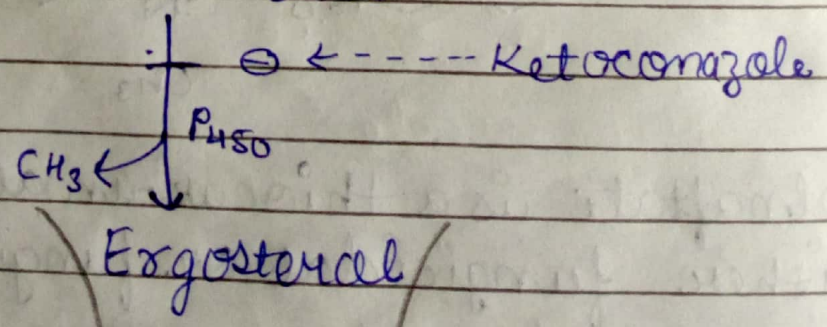 ⊖ ← - - - - - Ketoconazole
P450
CH3
Ergosterol